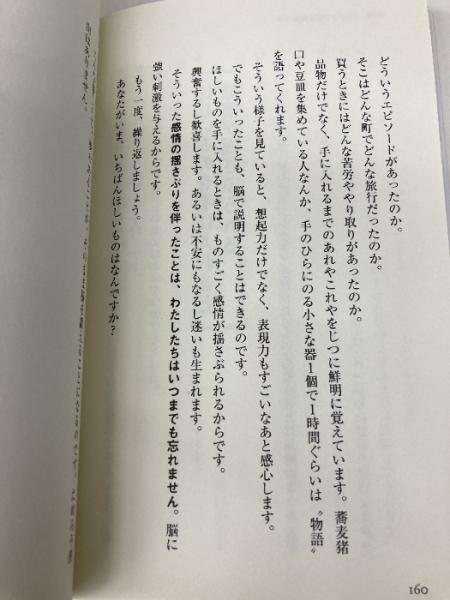 どういうエピソードがあったのか。
そこはどんな町でどんな旅行だったのか。
買うときにはどんな苦労ややり取りがあったのか。
品物だけでなく、手に入れるまでのあれやこれやをじつに鮮明に覚えています。蕎麦猪
口や豆皿を集めている人なんか、手のひらにのる小さな器1個で1時間ぐらいは〝物語〟
を語ってくれます。
そういう様子を見ていると、想起力だけでなく、表現力もすごいなあと感心します。
でもこういったことも、脳で説明することはできるのです。
ほしいものを手に入れるときは、ものすごく感情が揺さぶられるからです。
興奮するし歓喜します。あるいは不安にもなるし迷いも生まれます。
そういった感情の揺さぶりを伴ったことは、わたしたちはいつまでも忘れません。脳に
強い刺激を与えるからです。
もう一度、繰り返しましょう。
あなたがいま、いちばんほしいものはなんですか？
160